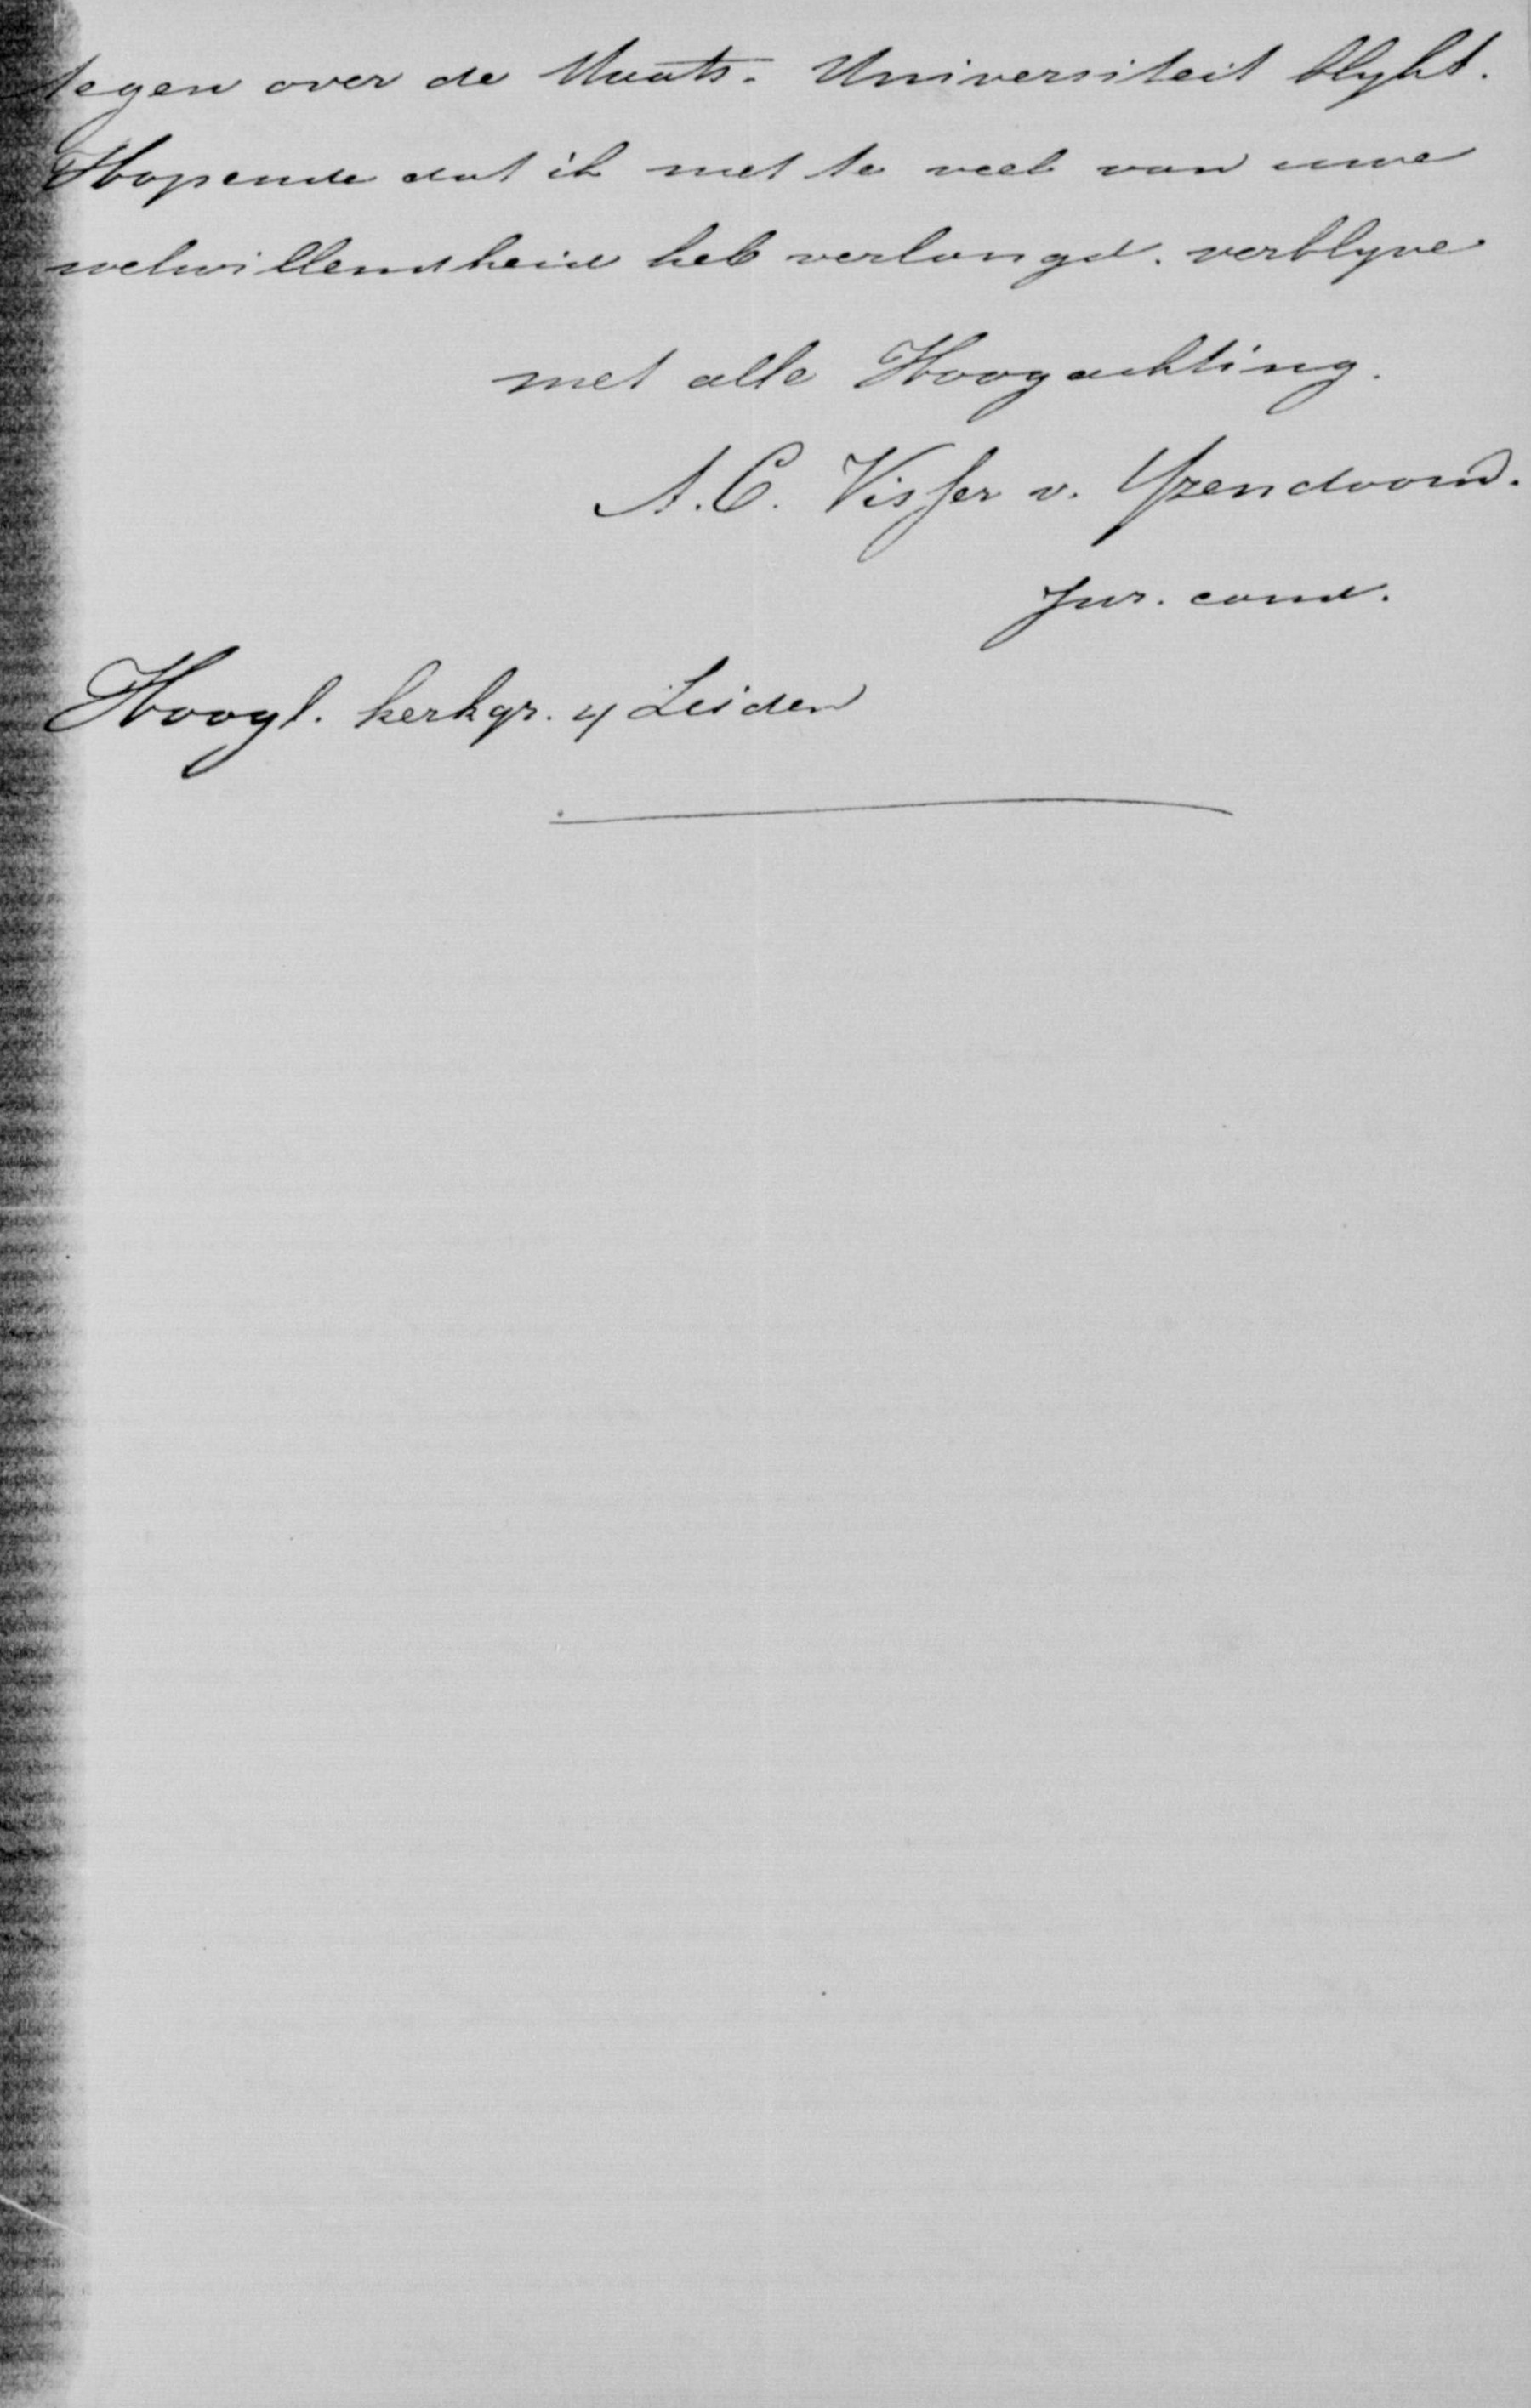 tegen over de Staats-Universiteit blykt.
Hopende dat ik niet te veel van uwe
welwillendheid heb verlangd. verblyve
met alle Hoogachting.
A. C. Visser v. Yzendoorn.
Jur. cand.
Hoogl. kerkgr. 4 Leiden